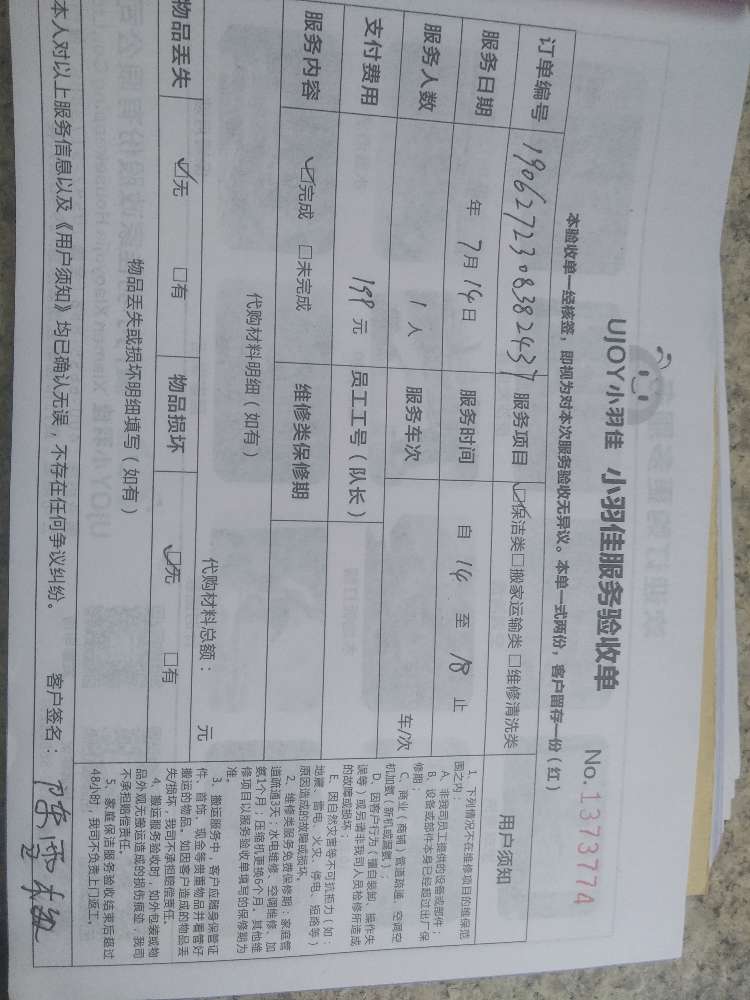 UJOY小羽佳 小羽佳服务验收单
No.1373774
本验收单一经核签，即视为对本次服务验收无异议。本单一式两份，客户留存一份（红）
订单编号 190627230838 2437 服务项目 ☑保洁类□搬家运输类□维修清洗类
服务日期 年 7月 14日 服务时间 自 14 至 18 止
服务人数 1 人 服务车次 车/次
支付费用 199 元 员工工号（队长）
服务内容 ☑完成 □未完成 维修类保修期
代购材料明细（如有）
代购材料总额： 元
物品丢失 ☑无 □有 物品损坏 ☑无 □有
物品丢失或损坏明细填写（如有）
用户须知
1、下列情况不在维修项目的维保范
围之内：
A、非我司员工提供的设备或部件；
B、设备或部件本身已经超过出厂保
修期；
C、商业（商铺）管道疏通、空调空
机加氨（新机或漏氨）；
D、因客户行为（擅自装卸、操作失
误等）或另请非我司人员检修所造成
的故障或损坏；
E、因自然灾害等不可抗拒力（如：
地震、雷电、火灾、停电、短路等）
原因造成的故障或损坏。
2、维修类服务免费保修期：家庭管
道疏通3天；水电维修、空调维修、加
氨1个月；压缩机更换6个月。其他维
修项目以服务验收单填写的保修期为
准。
3、搬运服务中，客户应随身保管证
件、首饰、现金等贵重物品并看管好
搬运的物品。如因客户造成的物品丢
失/损坏，我司不承担赔偿责任。
4、搬运服务验收时，如外包装或物
品外观无搬运造成的损伤痕迹，我司
不承担赔偿责任。
5、家庭保洁服务验收结束后超过
48小时，我司不负责上门返工。
本人对以上服务信息以及《用户须知》均已确认无误，不存在任何争议纠纷。 客户签名：